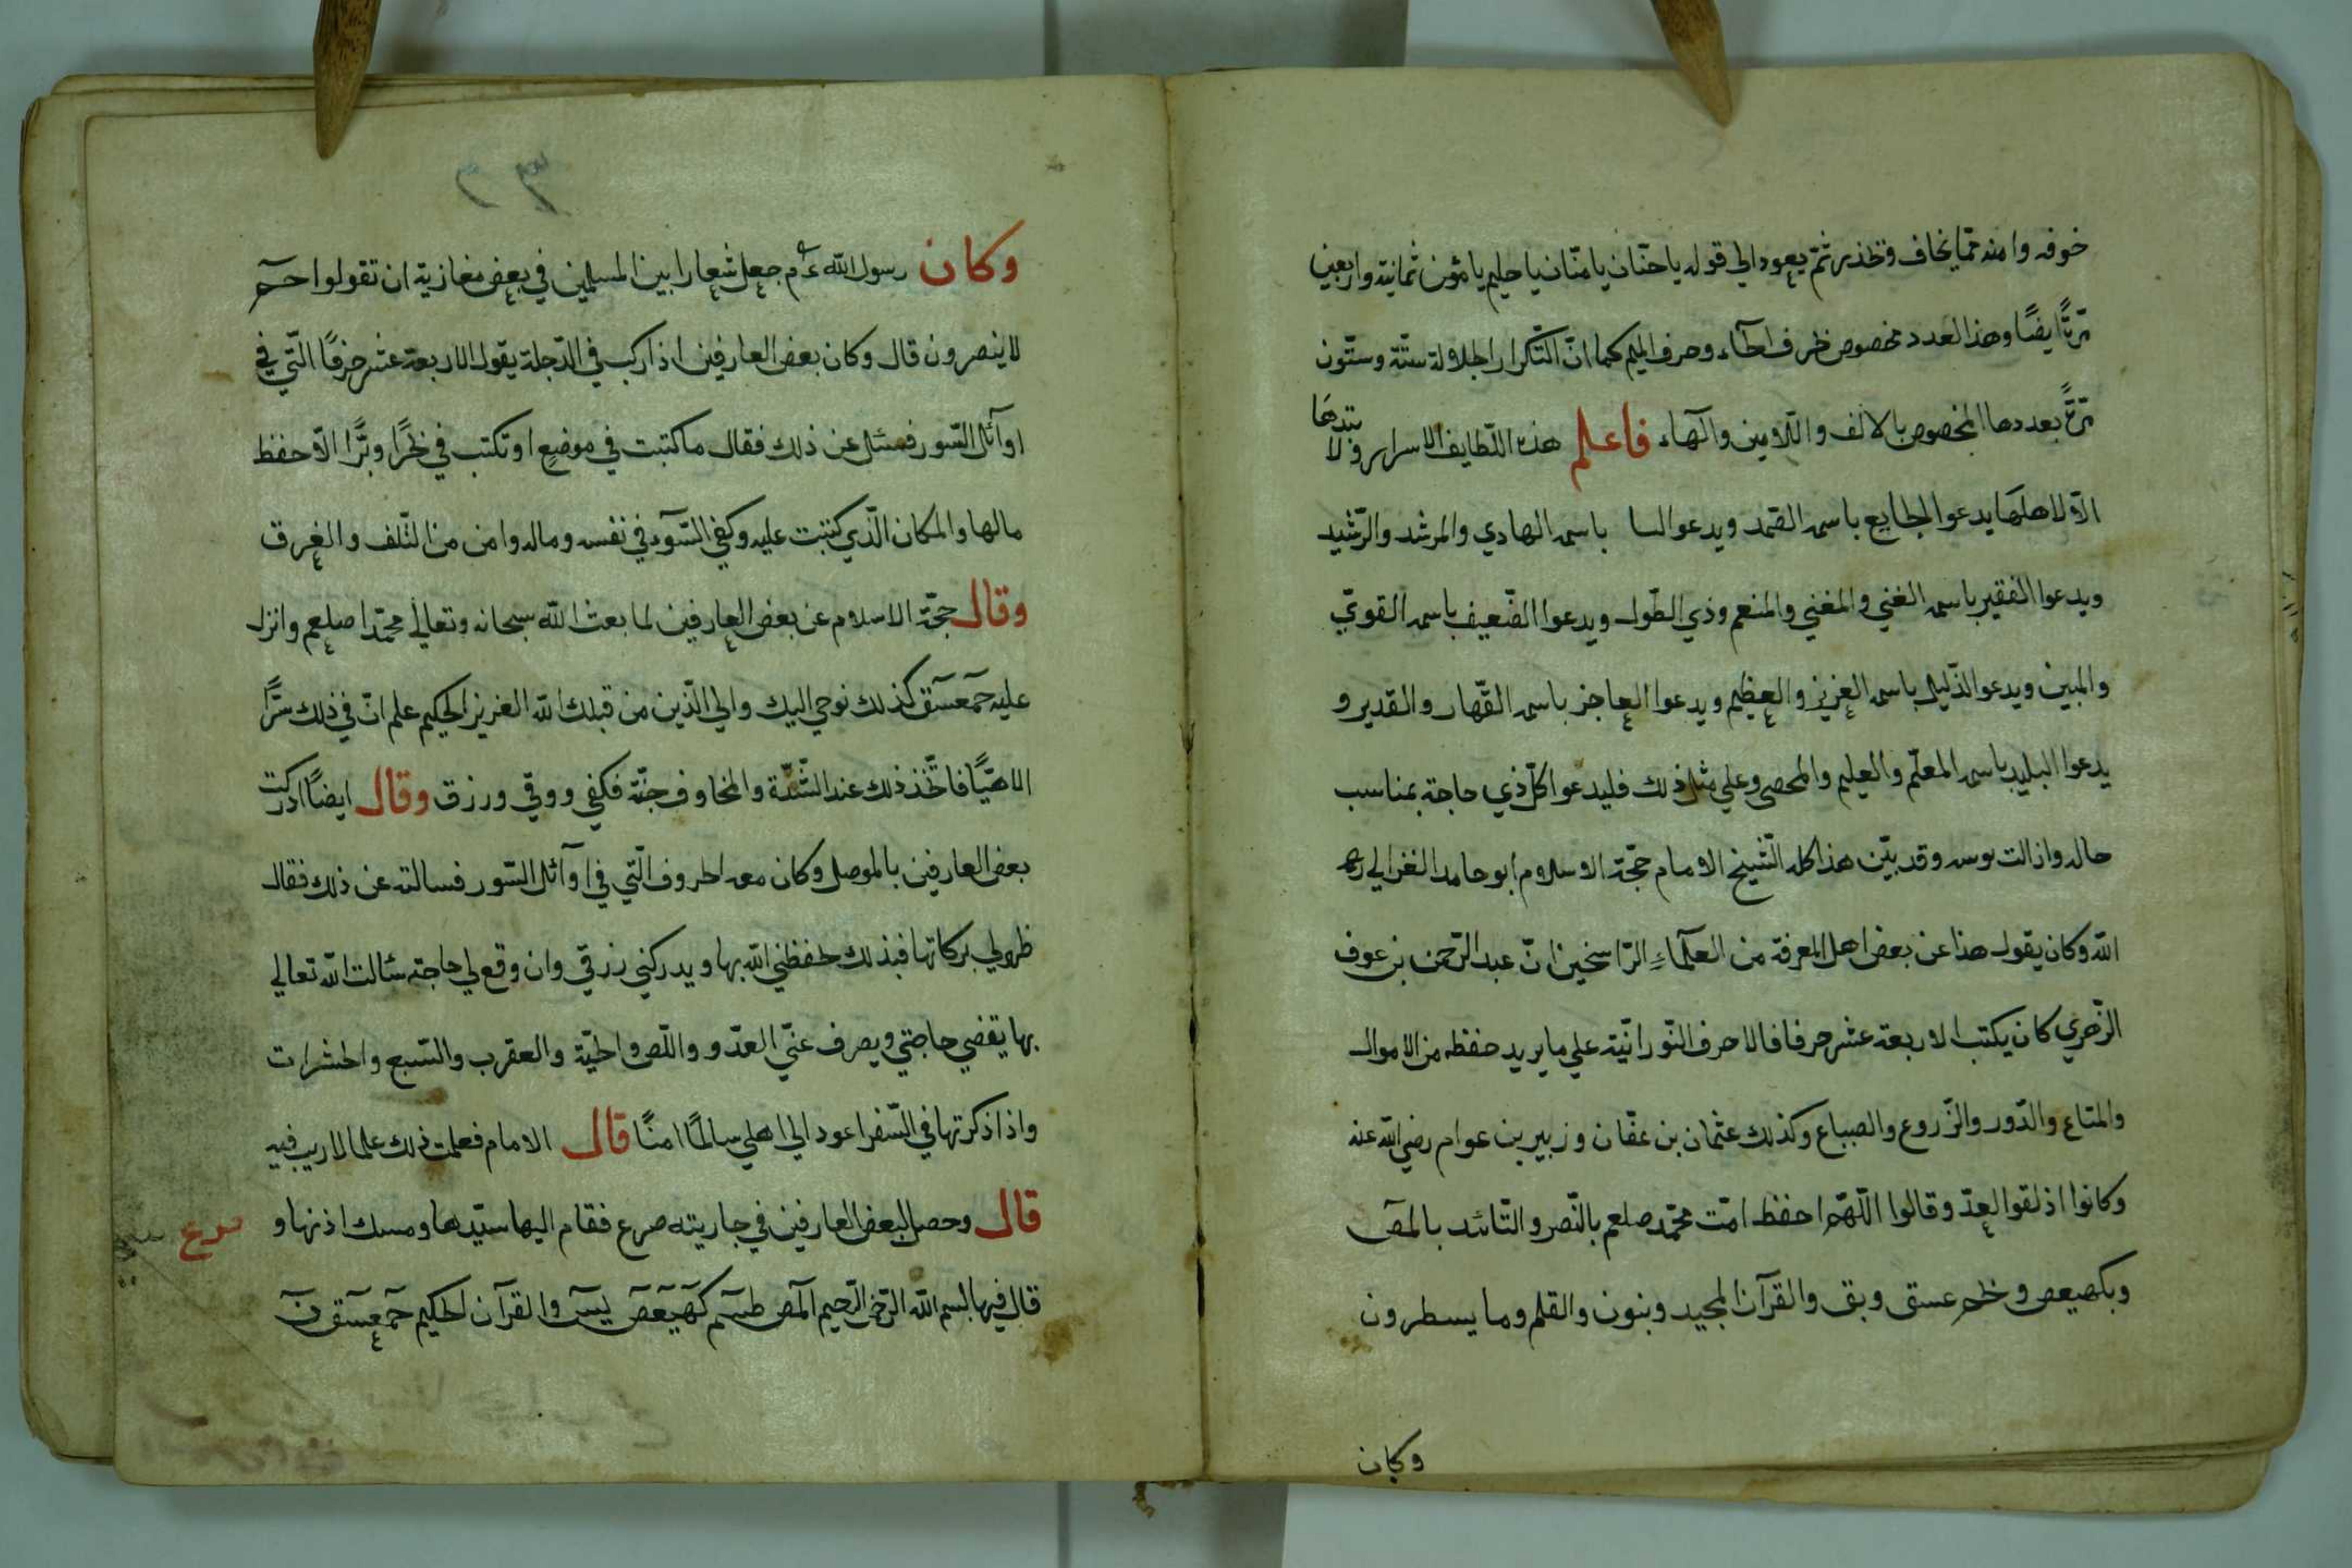 خوفه وامنه ممّا يخاف وتحذير ثمّ يعود الى قوله ياحنّان يامنّان ياحليم يامؤمن ثمانية واربعين
مرّةً ايضًا وهذا العدد مخصوص بحرف الحآء وحرف الميم كما انّ التّكرار الجلالة ستّة وستّون
مرّةً بعددها المخصوص بالالف واللّامين والهآء فاعلم هذه اللّطايف الاسرار ولا تبتدها
الّا لاهلها يدعوا الجايع باسمه الصّمد ويدعوا باسمه الهادي والمرشد والرّشيد
ويدعوا الفقير باسمه الغني والمغني والمنعم وذي الطّول ويدعوا الضّعيف باسمه القويّ
والمبين ويدعوا الذّليل باسمه العزيز والعظيم ويدعوا العاجز باسمه القهّار والقدير و
يدعوا البليد باسمه المعلّم والعليم والمحصي وعلي مثل ذلك فليدعوا كلّ ذي حاجة بمناسب
حاله وازالت بوسه وقد بيّن هذا كلّه الشّيخ الامام حجّة الاسلام ابو حامد الغزالي رحمه
الله وكان يقول هذا عن بعض اهل المعرفة من العلمآءِ الرّاسخين انّ عبد الرّحمن بن عوف
الزّهري كان يكتب الاربعة عشر حرفا فالاحرف النّورانيّة علي ما يريد حفظه من الاموال
والمتاع والدّور والزّروع والضياع وكذلك عثمان بن عفّان وزبير بن عوام رضي الله عنه
وكانوا اذ لقوا العدّو قالوا اللّهمّ احفظ امّت محمّد صلعم بالنّصر والتّائد بالمص
وبكهيعص وبحم عسق وبق والقرآن المجيد وبنون والقلم وما يسطرون
وكان
وكان رسول الله عم جعل شعارا بين المسلمين في بعض مغازية ان تقولوا حم
لا ينصرون قال وكان بعض العارفين اذا ركب في الدّجلة يقول الاربعة عشر حرفًا الّتي في
اوآئل السّور فسئل عن ذلك فقال ما كتبت في موضعٍ او تكتب في بحرًا وبرًّا الّا حفظ
مالها والمكان الّذي كتبت عليه وكفي السّوء في نفسه وماله وامن من التّلف والغرق
وقال حجّة الاسلام عن بعض العارفين لما بعث الله سبحانه وتعالي محمّدا صلعم وانزل
عليه حمعسق كذلك نوحي اليك والي الّذين من قبلك الله العزيز الحكيم علم انّ في ذلك سرًّا
الاهيًّا فاتّخذ ذلك عند الشّدّة والمخاوف جنّة فكفي ووقي ورزق وقال ايضًا ادركت
بعض العارفين بالموصل وكان معه الحروف الّتي في اوآئل السّور فسالته عن ذلك فقال
ظهرلي بركاتها فبذلك حفظني الله بها ويدركني رزقي وان وقع لي حاجة سئالت الله تعالي
بها يقضي حاجتي ويصرف عنّي العدّو واللّص والحيّة والعقرب والسّبع والحشرات
واذا ذكرتها في السّفر اعود الي اهلي سالمًا امنًا قال الامام فعلمت ذلك علما لاريب فيه
قال وحصل لبعض العارفين في جاريته صرع فقام اليها سيّدها ومسك اذنها و
صرع
قال فيها بسم الله الرّحمن الرّحيم المص طسم كهيعص يس والقرآن الحكيم حمعسق ن